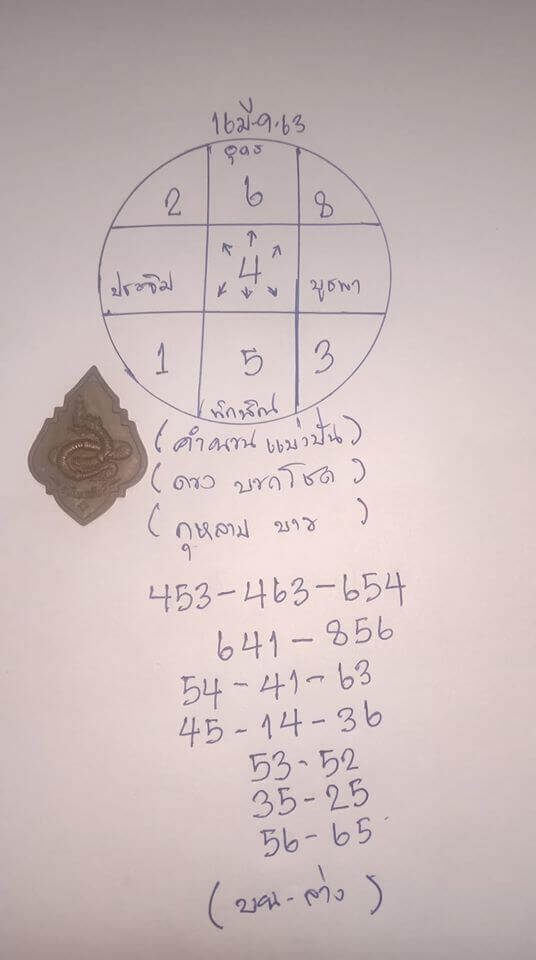 16มี.ค.63
อุดร
2 6 8
ประจิม 4 บูรพา
1 5 3
ทักษิณ
(คำนวน แม่วปั่น)
(ดวง บวกโชค)
(กุหลาบ บาย)
453-463-654
641-856
54-41-63
45-14-36
53-52
35-25
56-65
(บน-ล่าง)